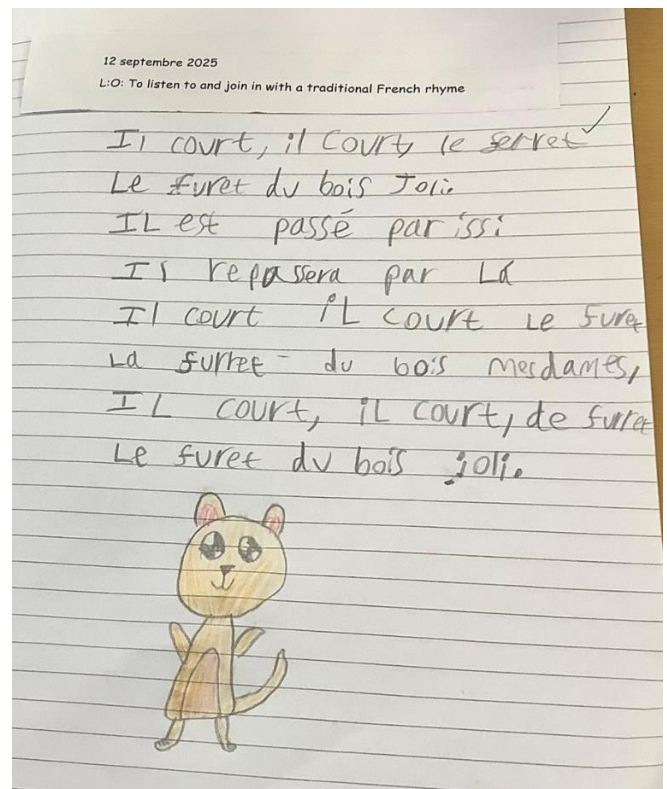 12 septembre 2025
L:O: To listen to and join in with a traditional French rhyme
Il court, il Court, le serret
Le furet du bois Joli.
IL est passé par issi
Il repassera par La
Il court iL court Le furet
La furret du bois mesdames,
IL court, iL court, de furret
Le furet du bois joli.